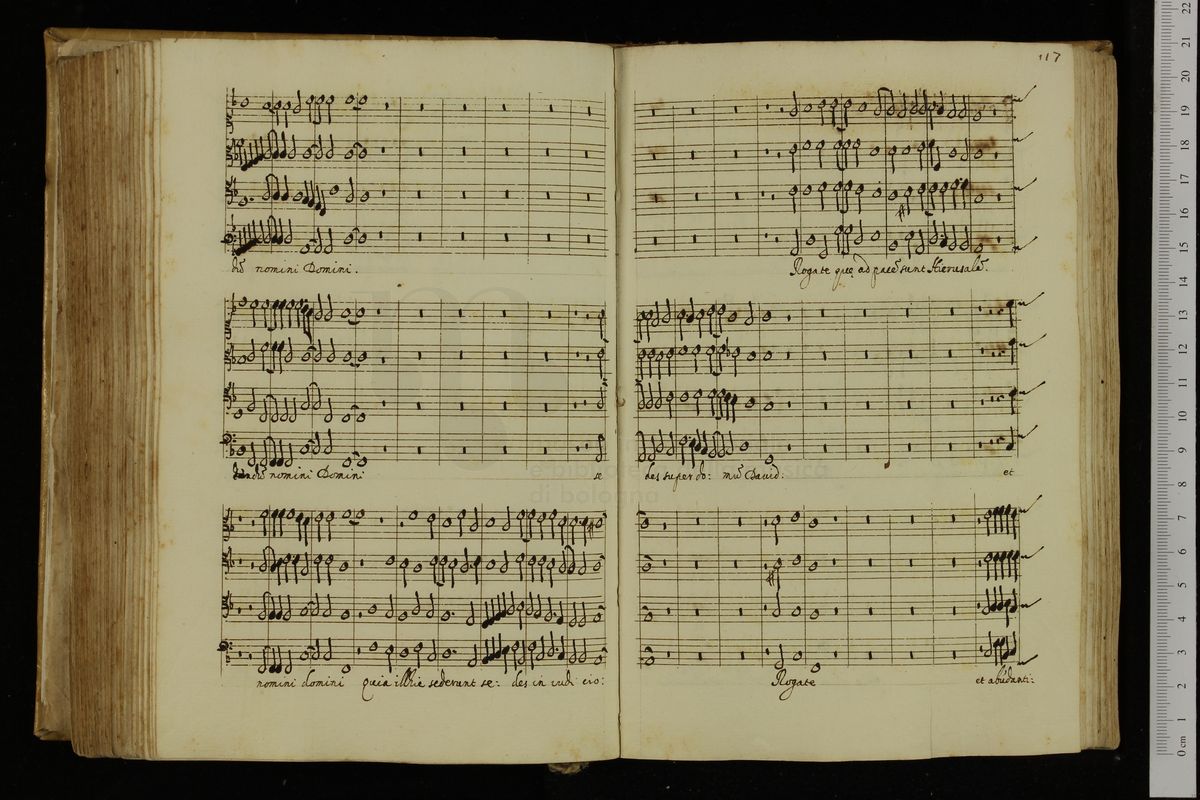 117
dū nomini Domini.
dū nomini Domini
se
nomini domini quia illic sederunt se: des in iudi cio:
Rogate quę ad pacē sunt Hierusalē.
des super do: mū David.
et
Rogate
et abūdanti:
e-biblio
di bologna
0 cm 1 2 3 4 5 6 7 8 9 10 11 12 13 14 15 16 17 18 19 20 21 22